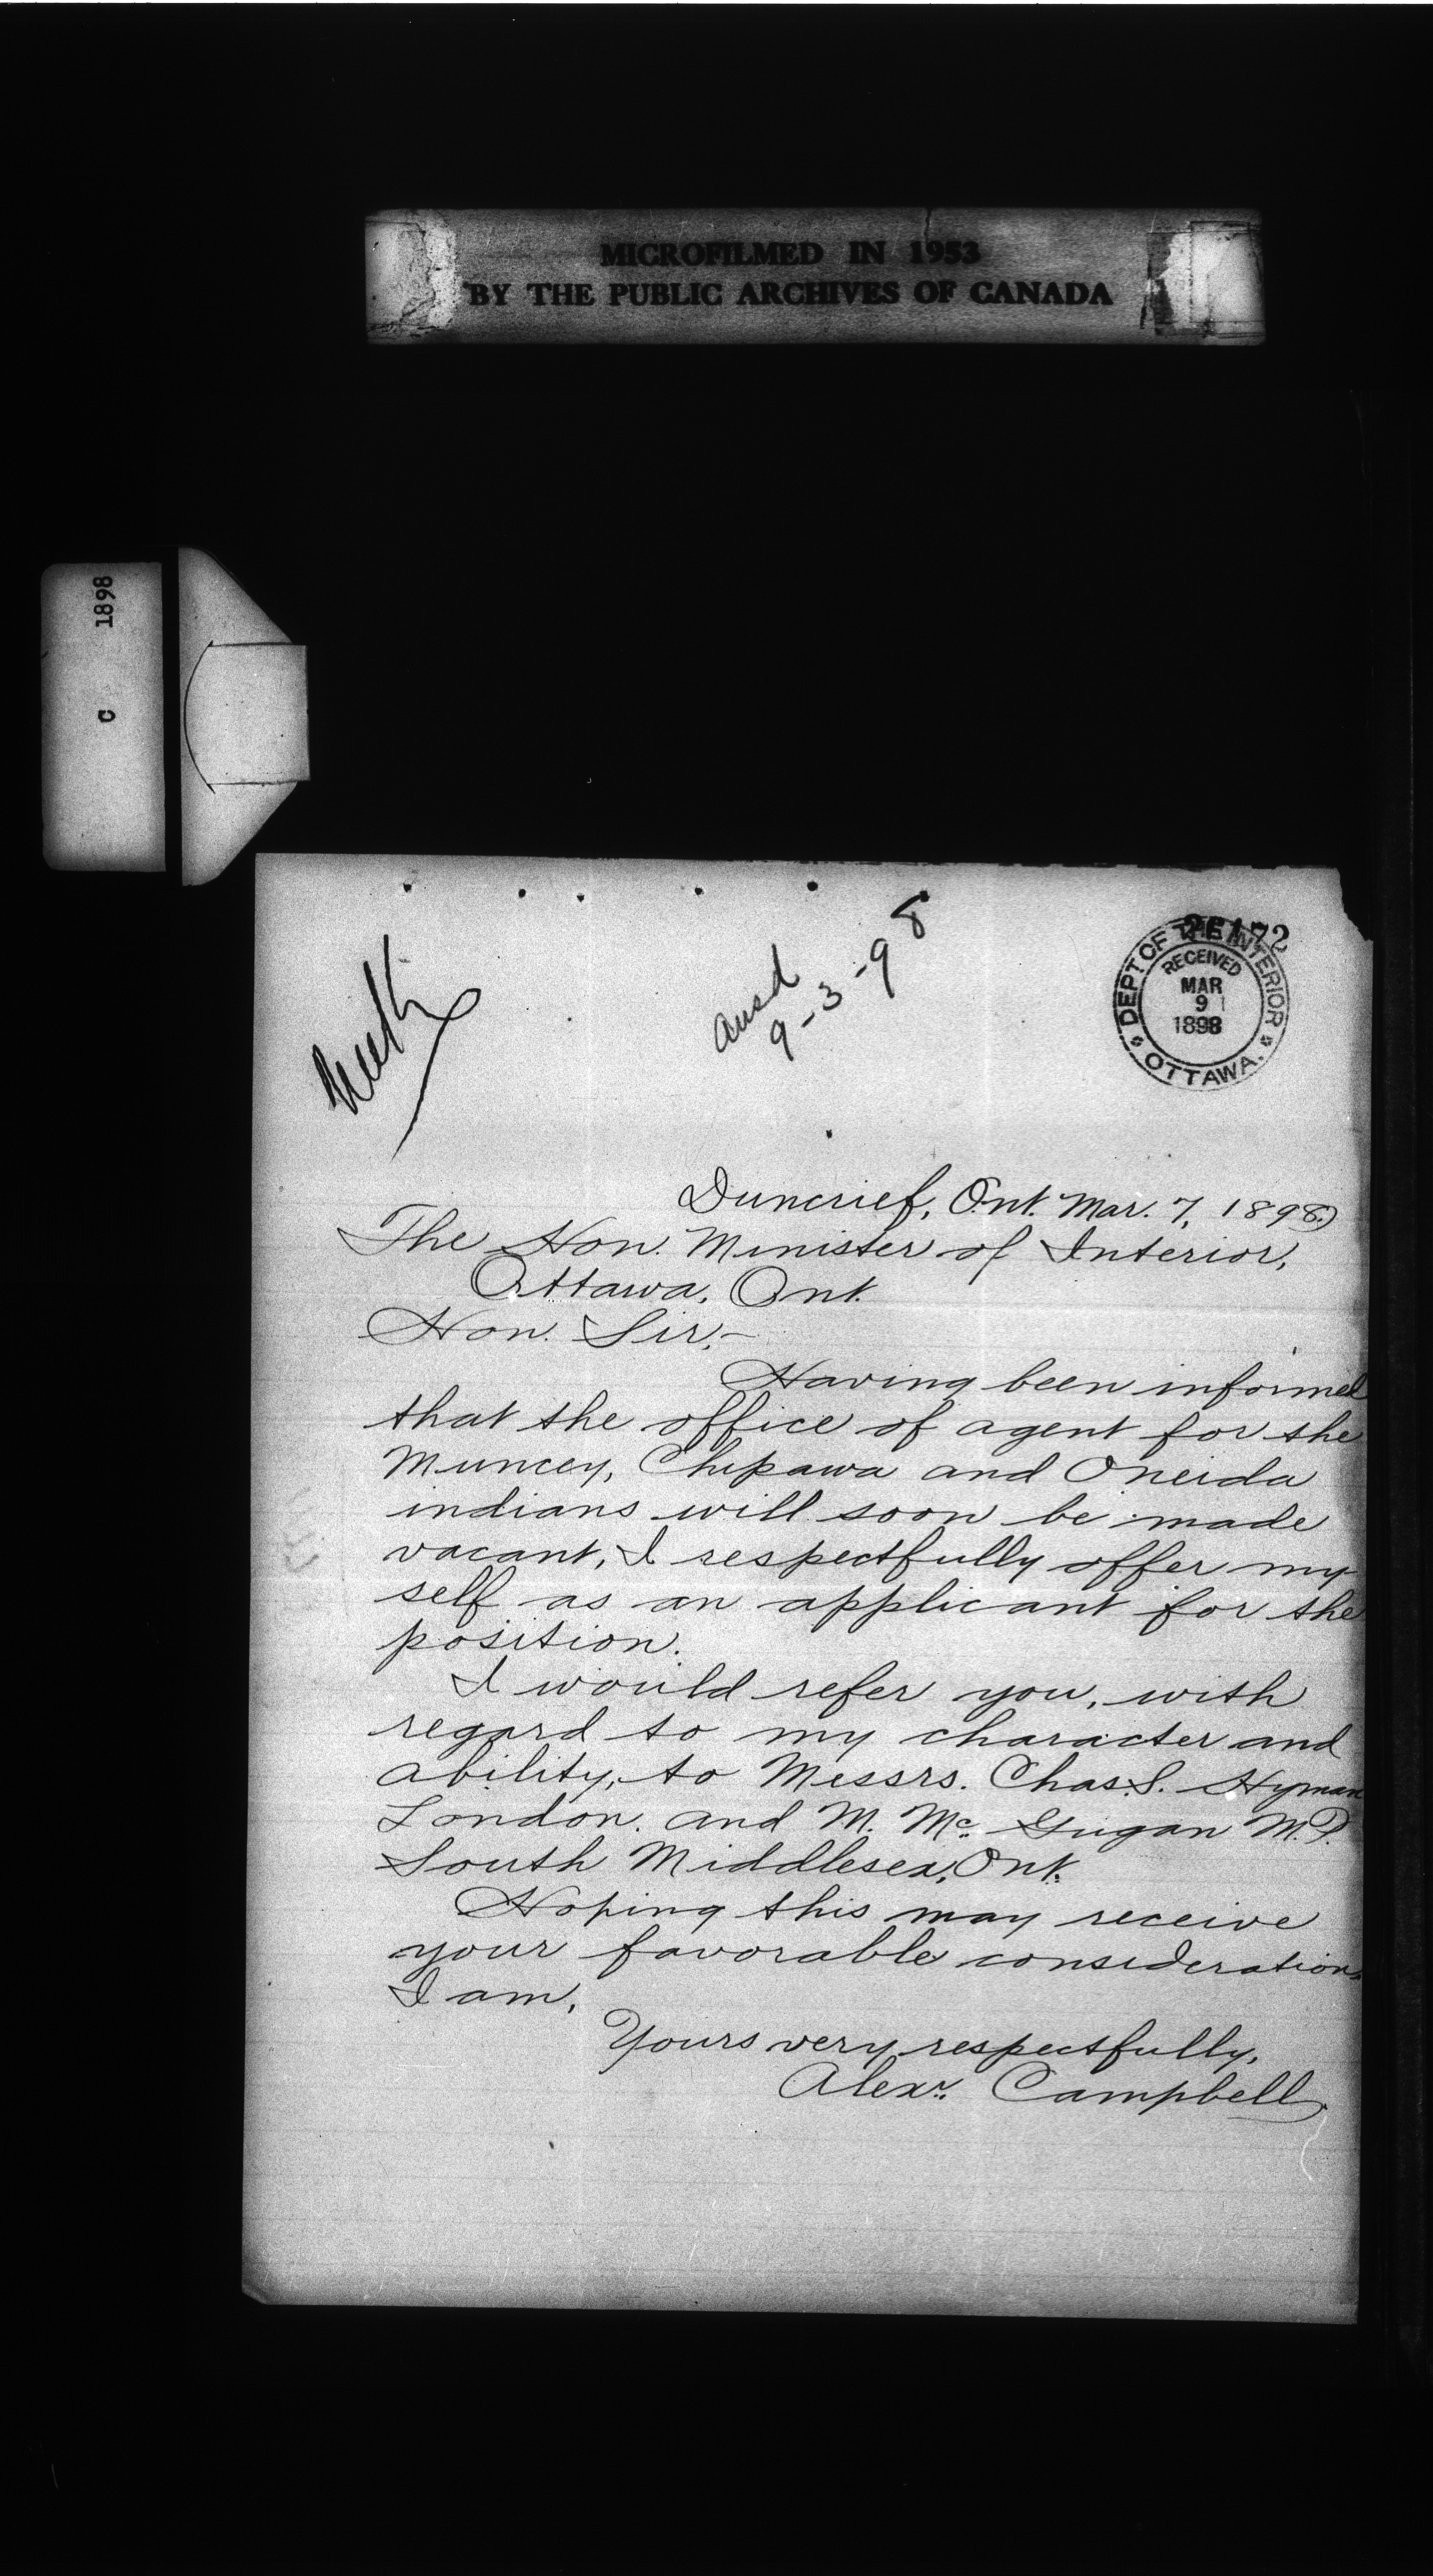 MICROFILMED IN 1953
BY THE PUBLIC ARCHIVES OF CANADA
C 1898
ansd
9-3-98
DEPT OF THE INTERIOR
RECEIVED
MAR
9
1898
OTTAWA.
Duncrief, Ont. Mar. 7, 1898.
The Hon. Minister of Interior,
Ottawa, Ont.
Hon. Sir,-
Having been informed
that the office of agent for the
Muncey, Chipawa and Oneida
indians will soon be made
vacant, I respectfully offer my
self as an applicant for the
position.
I would refer you, with
regard to my character and
ability, to Messrs. Chas. S. Hyman
London. and M. Mc Gugan M.P.
South Middlesex, Ont.
Hoping this may receive
your favorable consideration,
I am,
Yours very respectfully,
Alexr. Campbell